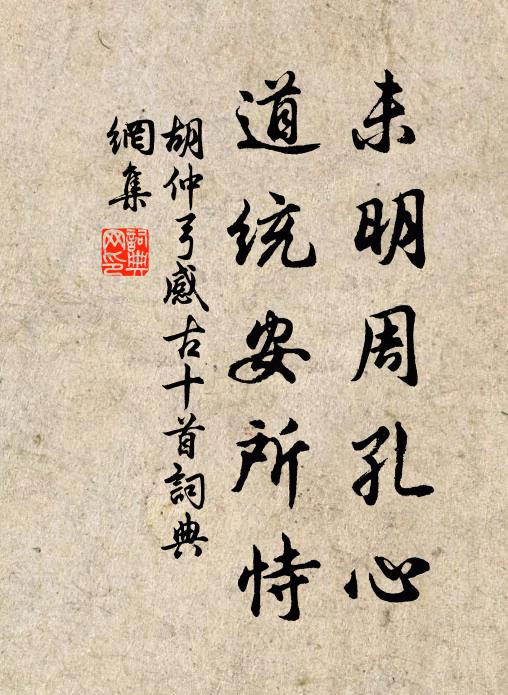 未明周孔心
道统安所恃
胡仲弓感古十首詞典
網集
詞典网印